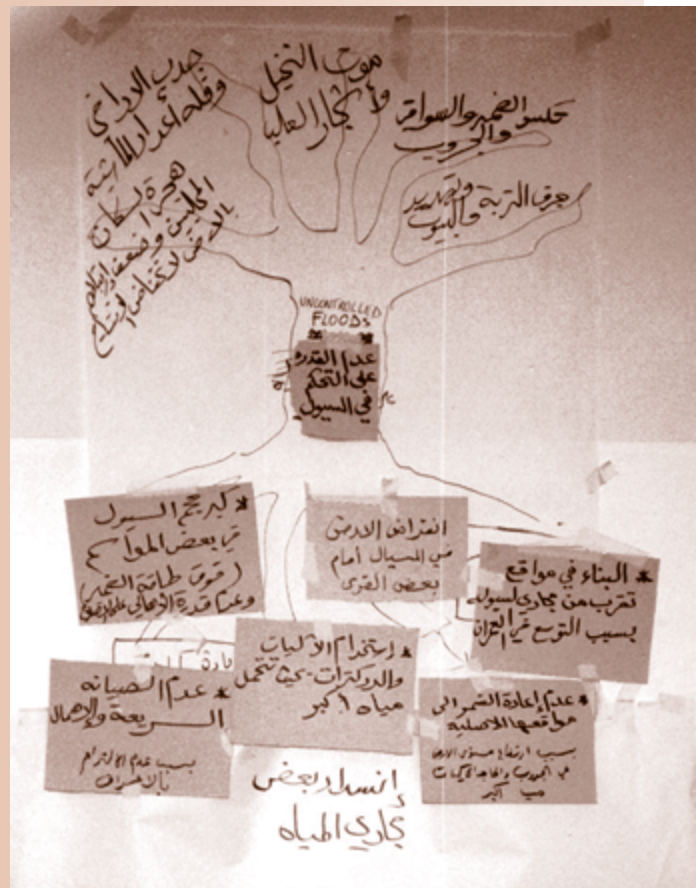 جدب الاراضي
وقلة أعداد الماشية
هجرة السكان
المحليين
موت النخيل
وأشجار العليا
والسواقي
والجروب
جرف التربة وتهديد
والبيوت
UNCONTROLLED
FLOODS
عدم القدرة
على التحكم
في السيول
* كبر حجم السيول
في بعض المواسم
(فوق طاقة
وعدم قدرة الأهالي
الارض
في المسال أمام
بعض القرى
* البناء في مواقع
تقرب من مجاري السيول
بسبب التوسع في العمران
* عدم الصيانه
السريعة والإهمال
بسبب عدم الإلتزام
بالأعراف
* إستخدام الآليات
والدركترات بحيث تتحمل
مياه أكبر
* عدم إعادة الى
مواقعها الاصلية
بسبب ارتفاع مستوى الارض
في الجروب
أكبر
إنسداد بعض
مجاري المياه